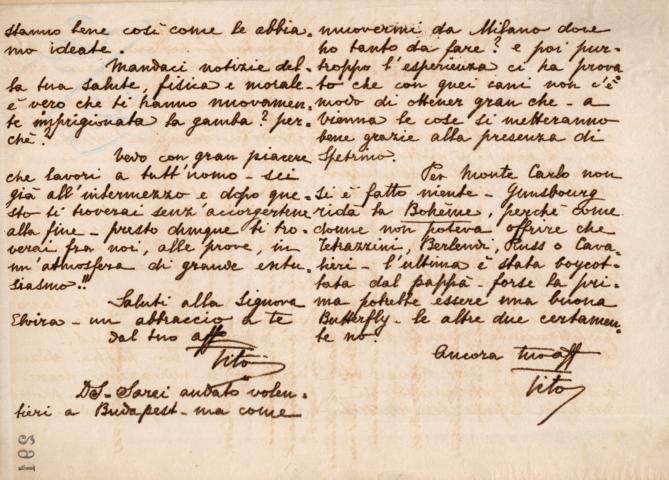 stanno bene così come le abbia-
mo ideate.
Mandaci notizie del-
la tua salute, fisica e morale-
è vero che ti hanno nuovamen-
te imprigionata la gamba? per-
chè?
Vedo con gran piacere
che lavori a tutt'uomo - sei
già all'intermezzo e dopo que-
sto ti troverai senz'accorgertene
alla fine - presto dunque ti tro-
verai fra noi, alle prove, in
un'atmosfera di grande entu-
siasmo!!
Saluti alla Signora
Elvira - un abbraccio a te
dal tuo aff
Tito
D.S. Sarei andato volen-
tieri a Budapest - ma come
muovermi da Milano dove
ho tanto da fare? e poi pur-
troppo l'esperienza ci ha prova-
to che con quei cani non c'è
modo di ottener gran che - a
Vienna le cose si metteranno
bene grazie alla presenza di
Spetrino.
Per Monte Carlo non
si è fatto niente - Gunsbourg
rida la Bohème, perchè come
donne non poteva offrire che
Tetrazzini, Berlendi, Russ o Cava-
lieri - l'ultima è stata boycot-
tata dal pappà - forse la pri-
ma potrebbe essere una buona
Butterfly - le altre due certamen-
te no!
Ancora tuo aff
Tito
391